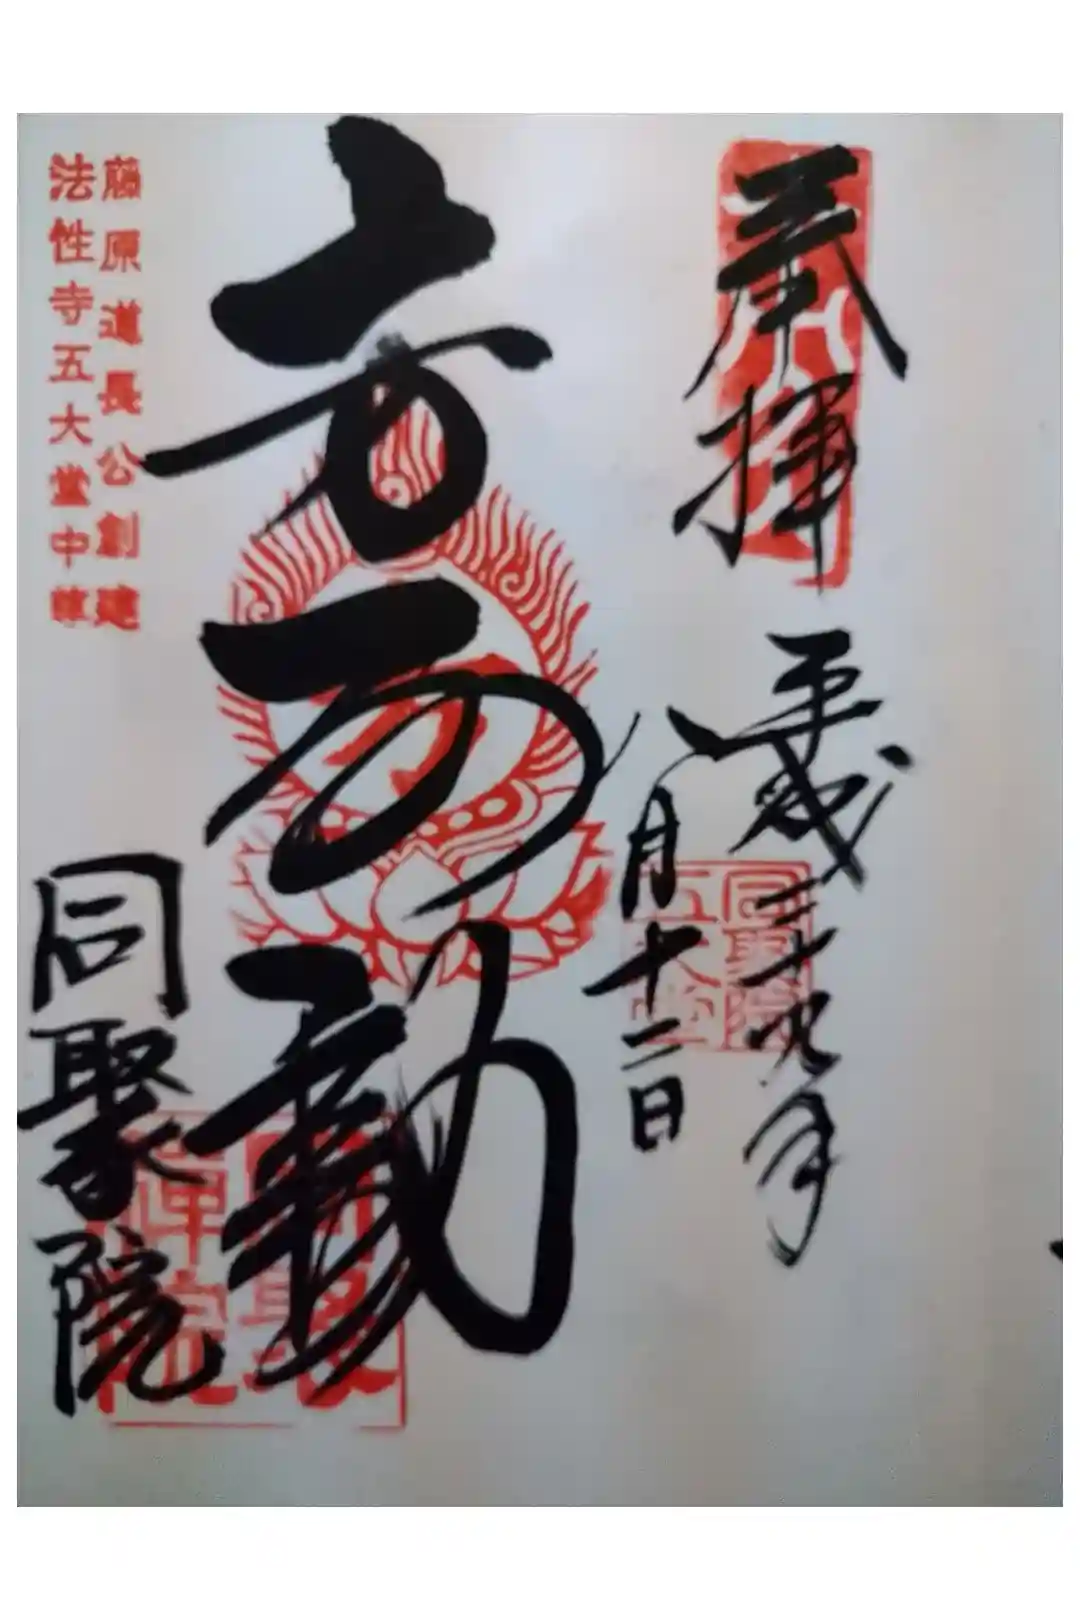 奉拝
平成二十九年
八月十二日
同聚院
五大堂
不動
藤原道長公創建
法性寺五大堂中尊
同聚院
同聚
禅院